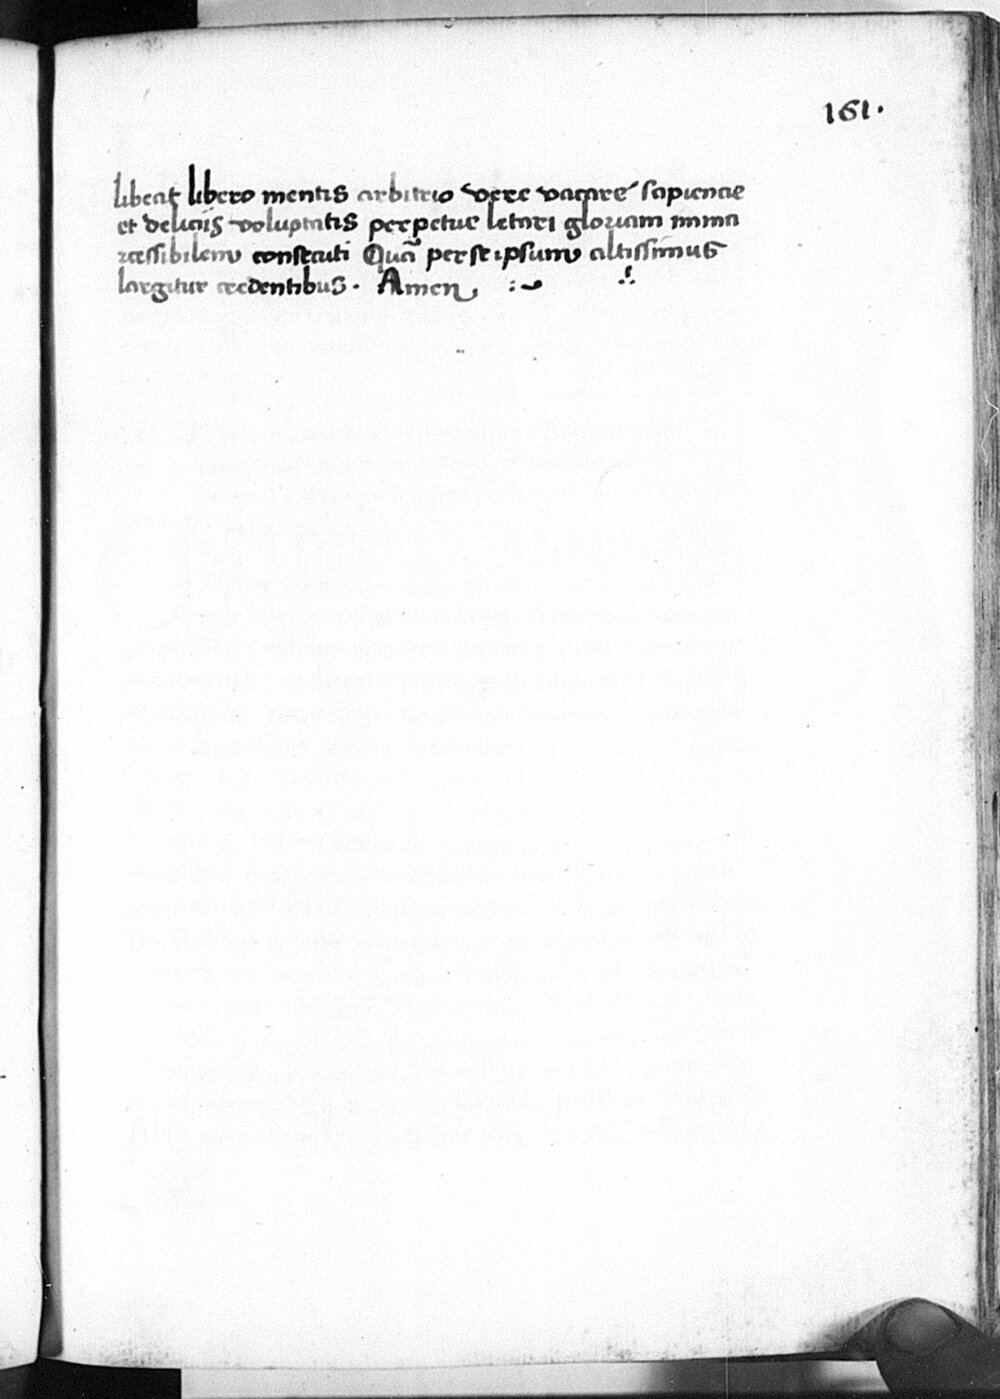 161.
libeat libero mentis arbitrio vere vacare sapienae
et delicijs voluptatis perpetue letari gloriam imma
rcessibilem consecuti Quā per se ipsum altissimus
largitur credentibus. Amen